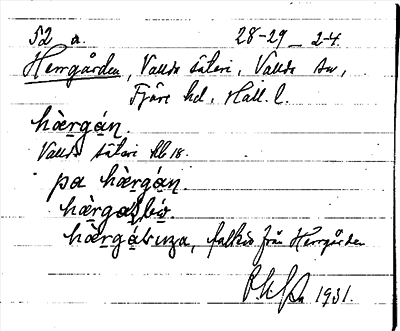 52 a. 28-29 - 2-4.
Herrgården, Vallda säteri, Vallda sn,
Fjäre hd, Hall. l.
hàrgán.
Vallda säteri Rb 18.
pa hàrgán.
hàrga
hàrga folket från Herrgården
1931.